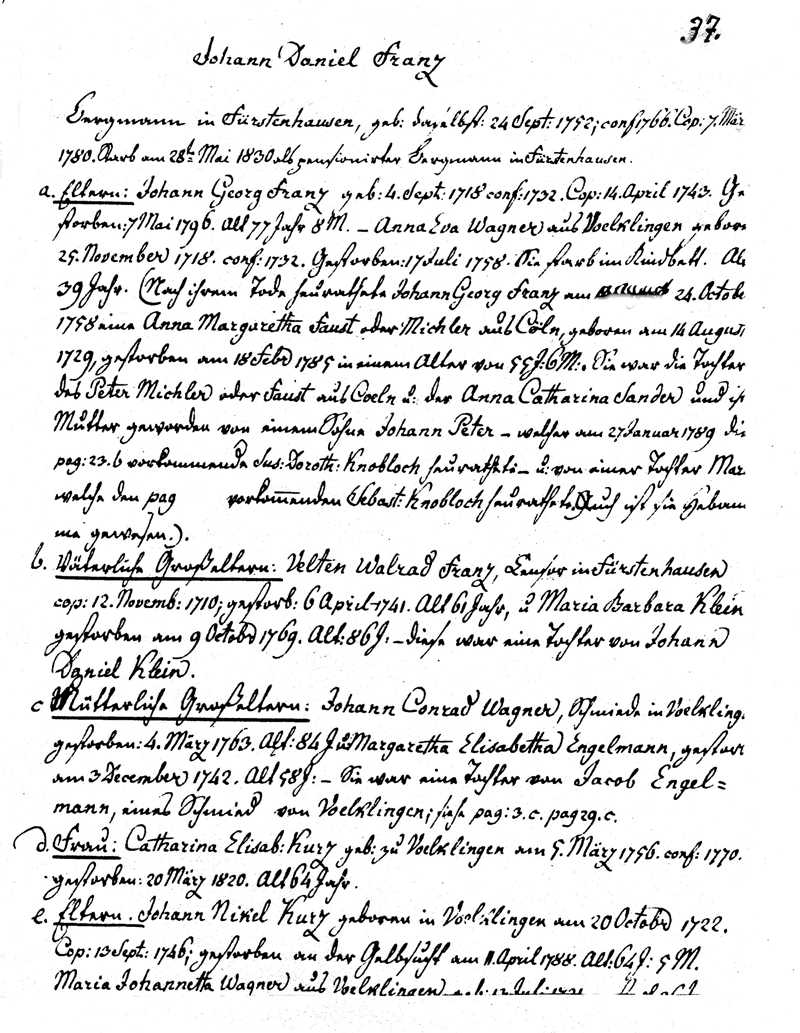 37.
Johann Daniel Franz
Bergmann in Fürstenhausen, geb: daselbst: 24 Sept: 1752; conf 1766. Cop: 7. Mär
1780. Starb am 28t. Mai 1830 als pensionirter Bergmann in Fürstenhausen.
a. Eltern: Johann Georg Franz geb: 4. Sept: 1718 conf: 1732. Cop: 14. April 1743. Ge
storben: 7 Mai 1796. Alt 77 Jahr 8 M. – Anna Eva Wagner aus Voelklingen gebore
25. November 1718. conf: 1732. Gestorben: 17 Juli 1758. Sie starb im Kindbett. Alt
39 Jahr. (Nach ihrem Tode heurathete Johann Georg Franz am 24. Octobe
1758 eine Anna Margaretha Faust oder Michler aus Cöln, geboren am 14 August
1729, gestorben am 18 Febr 1785 in einem Alter von 55 J: 6 M:. Sie war die Tochter
des Peter Michler oder Faust aus Coeln u: der Anna Catharina Sander und ist
Mutter geworden von einem Sohne Johann Peter – welcher am 27 Januar 1789 die
pag: 23. b vorkommende Sus: Doroth: Knobloch heurathete – u: von einer Tochter Mar
welche den pag vorkom̅enden Sebast: Knobloch heurathete. Auch ist sie Hebam
me gewesen.).
b. Väterliche Großeltern: Velten Walrad Franz, Censor in Fürstenhausen
cop: 12. Novemb: 1710; gestorb: 6 April 1741. Alt 61 Jahr, u Maria Barbara Klein
gestorben am 9 Octobr 1769. Alt: 86 J: – diese war eine Tochter von Johann
Daniel Klein.
c Mütterliche Großeltern: Johann Conrad Wagner, Schmiede in Voelkling.
gestorben: 4. März 1763. Alt: 84 J u: Margaretha Elisabetha Engelmann, gestorb
am 3 December 1742. Alt 58 J: – Sie war eine Tochter von Jacob Engel=
mann, eines Schmied von Voelklingen; siehe pag: 3. c. pag 29. c.
d. Frau: Catharina Elisab: Kurz geb: zu Voelklingen am 5. März 1756. conf: 1770.
gestorben: 20 März 1820. Alt 64 Jahr.
e. Eltern. Johann Nikel Kurz geboren in Voelklingen am 20 Octobr 1722.
Cop: 13 Sept: 1746; gestorben an der Gelbsucht am 11. April 1788. Alt: 64 J: 5 M.
Maria Johannetta Wagner aus Voelklingen